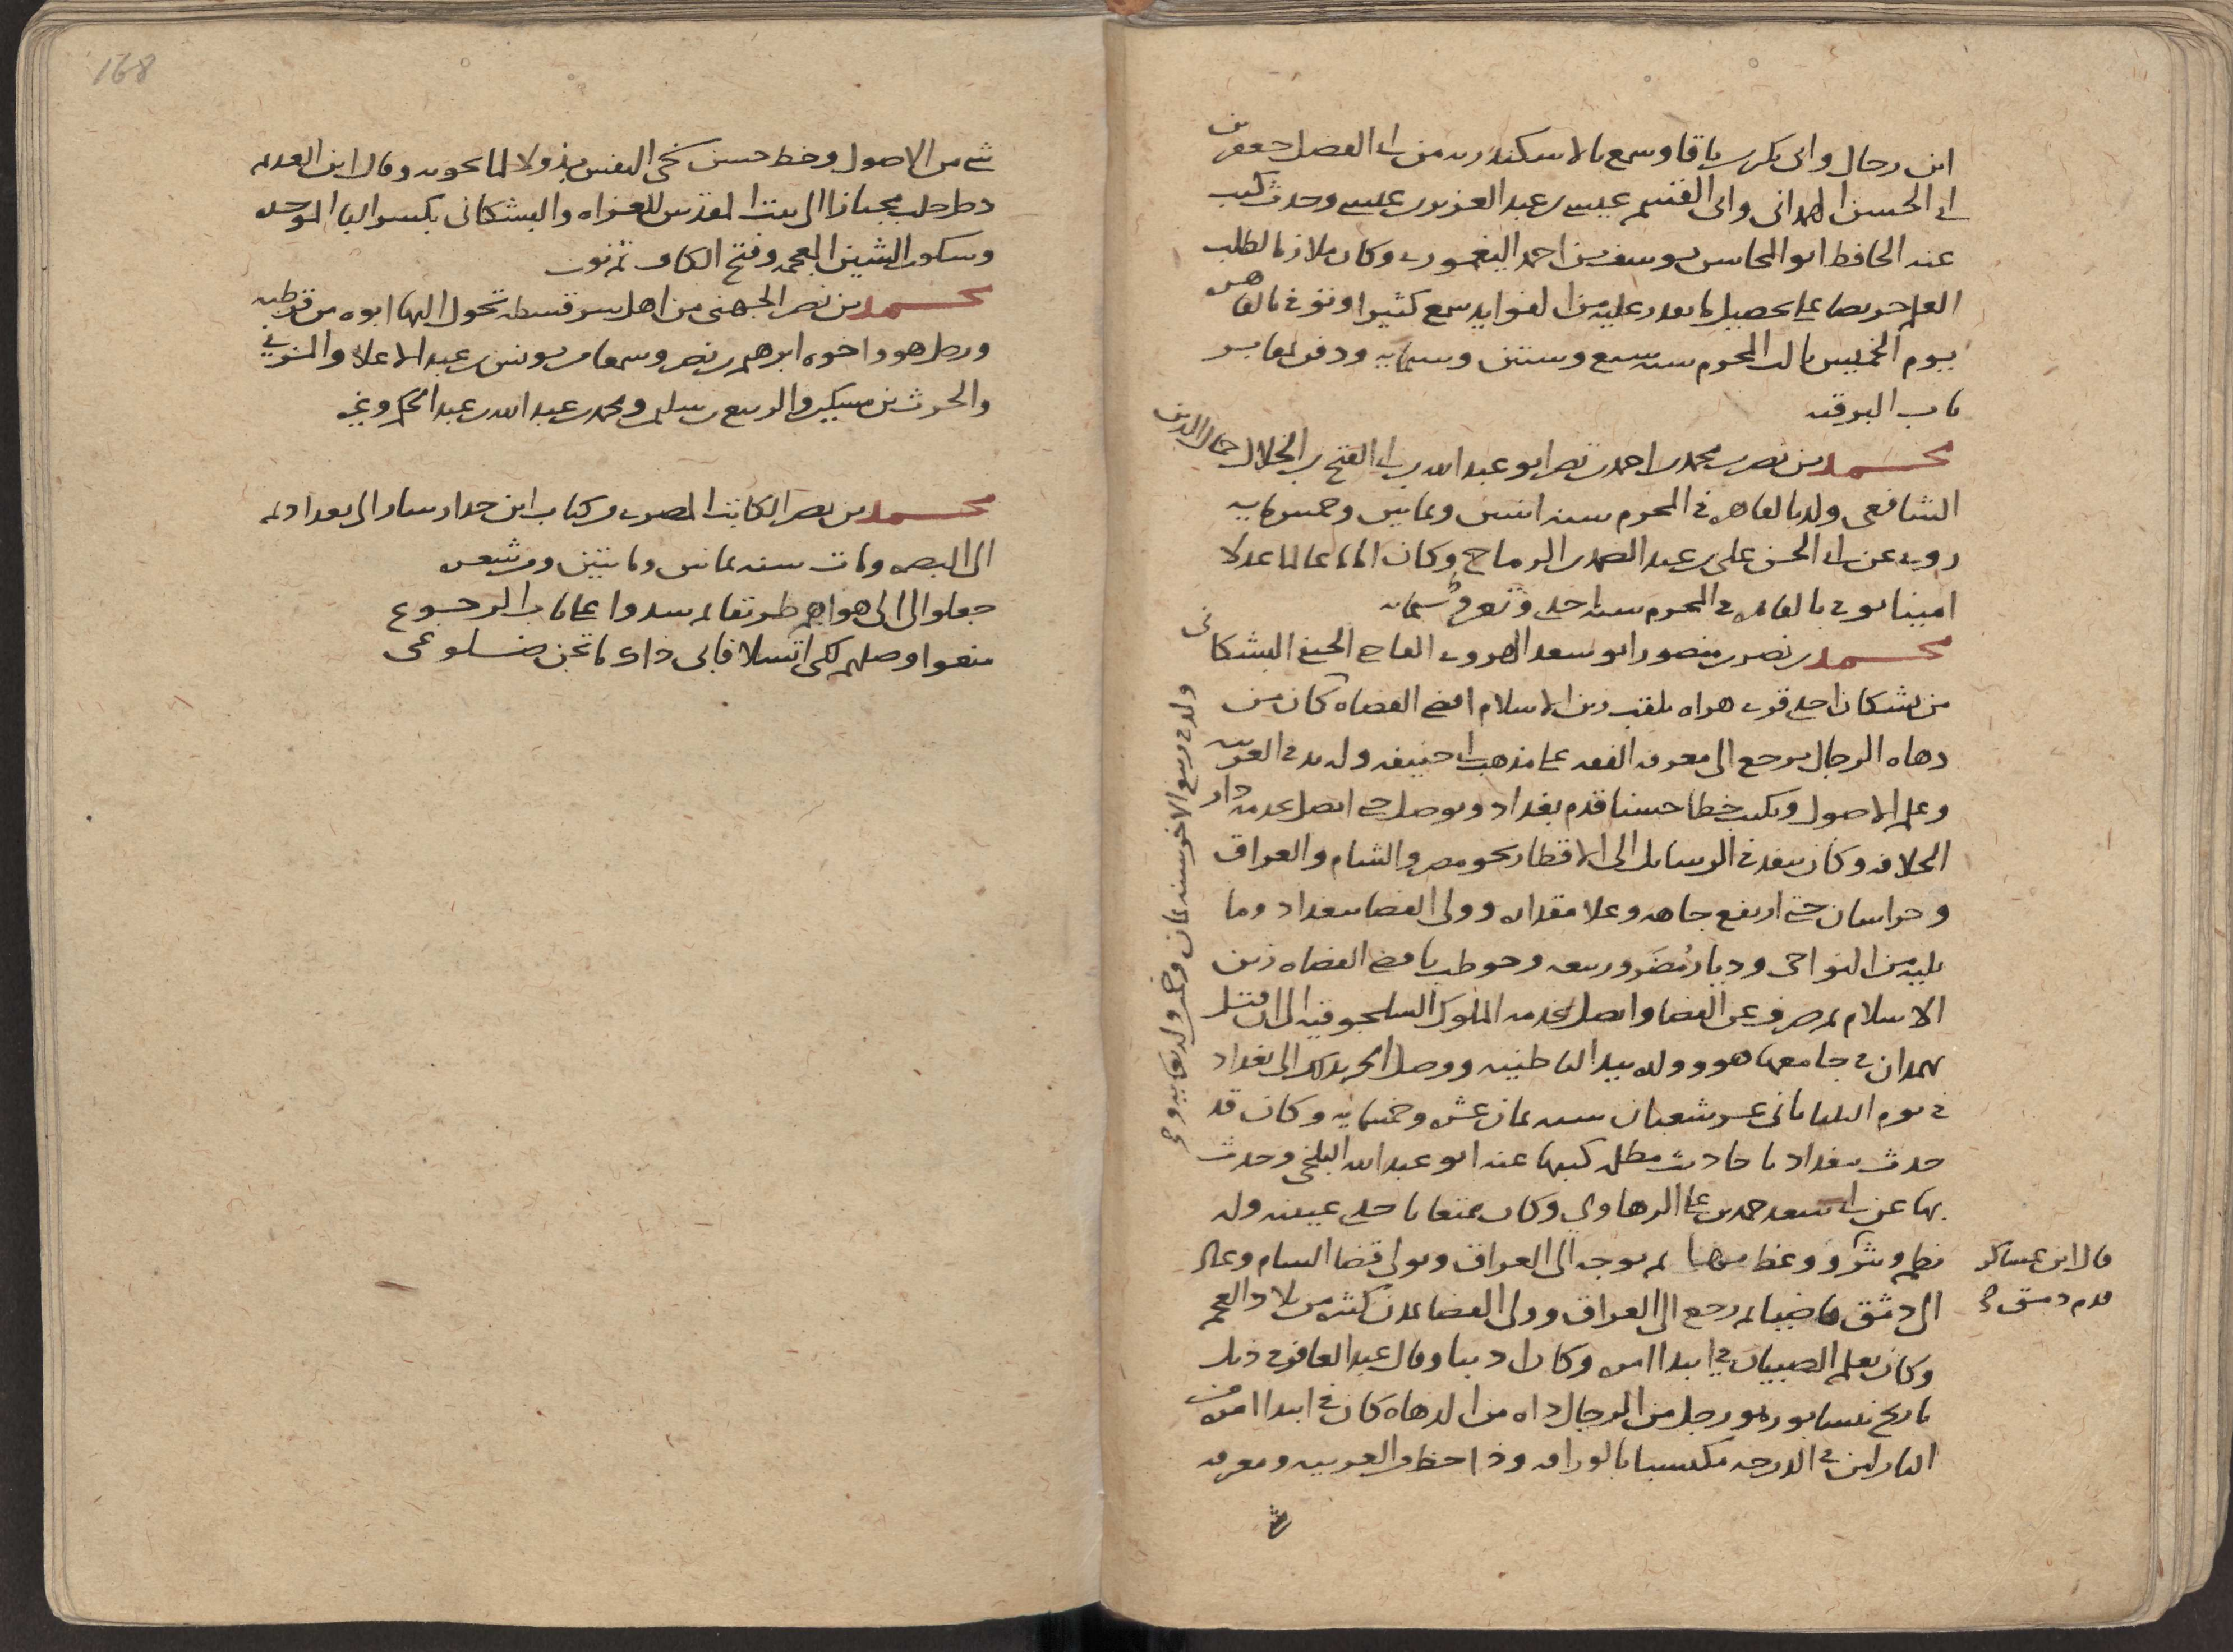 ابن رحال وابى بكر بن باقا وسمع بالاسكندريه من ابى الفضل جعفر بن
ابى الحسن الهمدانى وابى القسم عيسى بن عبد العزيز بن عيسى وحدث كتب
عنه الحافظ ابو المحاسن يوسف بن احمد اليغمورى وكان ملازما لطلب
العلم حريصا على تحصيل ما يعدر عليه من الفوايد سمع كثيرا وتوفى بالقاهره
يوم الخميس ثالث المحرم سنه سبع وستين وستمايه ودفن بمقابر
باب البرقيه
محمد بن نصر بن محمد بن احمد بن نصر ابو عبد الله بن ابى الفتح بن الخلال جمال الدين
الشافعى ولد بالقاهره فى المحرم سنه اثنتين وثمانين وخمسمايه
روى عن ابى الحسن على بن عبد الصمد بن الرماح وكان اماما عالما عدلا
امينا توفى بالقاهره فى المحرم سنه احدى وستمايه
محمد بن نصر بن منصور ابو سعد الهروى القاضى الحنفى البشكانى
من بشكان احدى قرى هراه يلقب زين الاسلام اقضى القضاه كان من
دهاه الرجال يرجع الى معرفه الفقه على مذهب ابى حنيفه وله يد فى العربيه
وعلم الاصول ويكتب خطا حسنا قدم بغداد وتوصل حتى اتصل بخدمه دار
الخلافه وكان ينفذ فى الرسايل الى الاقطار نحو مصر والشام والعراق
وخراسان حتى ارتفع جاهه وعلا مقداره وولى القضا ببغداد وما
يليه من النواحى وديار مُضَر وربيعه وخوطب باقضى القضاه زين
الاسلام ثم صرف عن القضا واتصل بخدمه الملوك السلجوقيه الى ان قتل
بهمدان فى جامعها هو وولده بيد الباطنيه ووصل الخبر بذلك الى بغداد
فى يوم الثلثا ثانى عشر شعبان سنه ثمان عشره وخمسمايه وكان قد
حدث ببغداد باحاديث مظلمه كتبها عنه ابو عبد الله البلخى وحدث
بها عن ابى سعد حمد بن على الرهاوى وكان ممتعا باحدى عينيه وله
نظم ونثر ووعظ بها ثم توجه الى العراق وتولى قضا الشام وعاد
الى دمشق قاضيا ثم رجع الى العراق وولى القضا بمدن كثيره من بلاد العجم
وكان يعلم الصبيان فى ابتدا امره وكان اديبا وقال عبد الغافر فى ذيل
تاريخ نيسابور هو رجل من الرجال داه من الدهاه كان فى ابتدا امره من
النازلين فى الدرجه مكتسبا بالوراقه وذا حظ من العربيه ومعرفه
قال ابن عساكر
قدم دمشق
ولد فى ربيع الاخر سنه ثمان
شى من الاصول وخط حسن سخى النفس بذولا لما يحويه وقال ابن العديم
دخل حلب مجتازا الى بيت المقدس للغزاه والبشكانى بكسر البا الموحده
وسكون الشين المعجمه وفتح الكاف ثم نون
محمد بن نصر الجهنى من اهل سرقسطه تحول اليها ابوه من قرطبه
ورحل هو واخوه ابرهيم بن نصر وسمعا من يونس بن عبد الاعلا والمزنى
والحرث بن مسكين والربيع بن سليمن ومحمد بن عبد الله بن عبد الحكم وغيره
محمد بن نصر الكاتب المصرى من كتاب ابن حدار سار الى بغداد ثم
الى البصره ومات سنه ثمانين ومايتين ومن شعره
جعلوا لى الى هواهم طريقا ثم سدوا على باب الرجوع
منعوا وصلهم لكى اتسلا فابى ذاك ما تجن ضلوعى
168